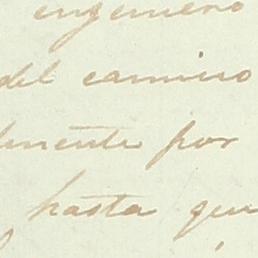 ingeniero
del camino
lmente por
hasta que